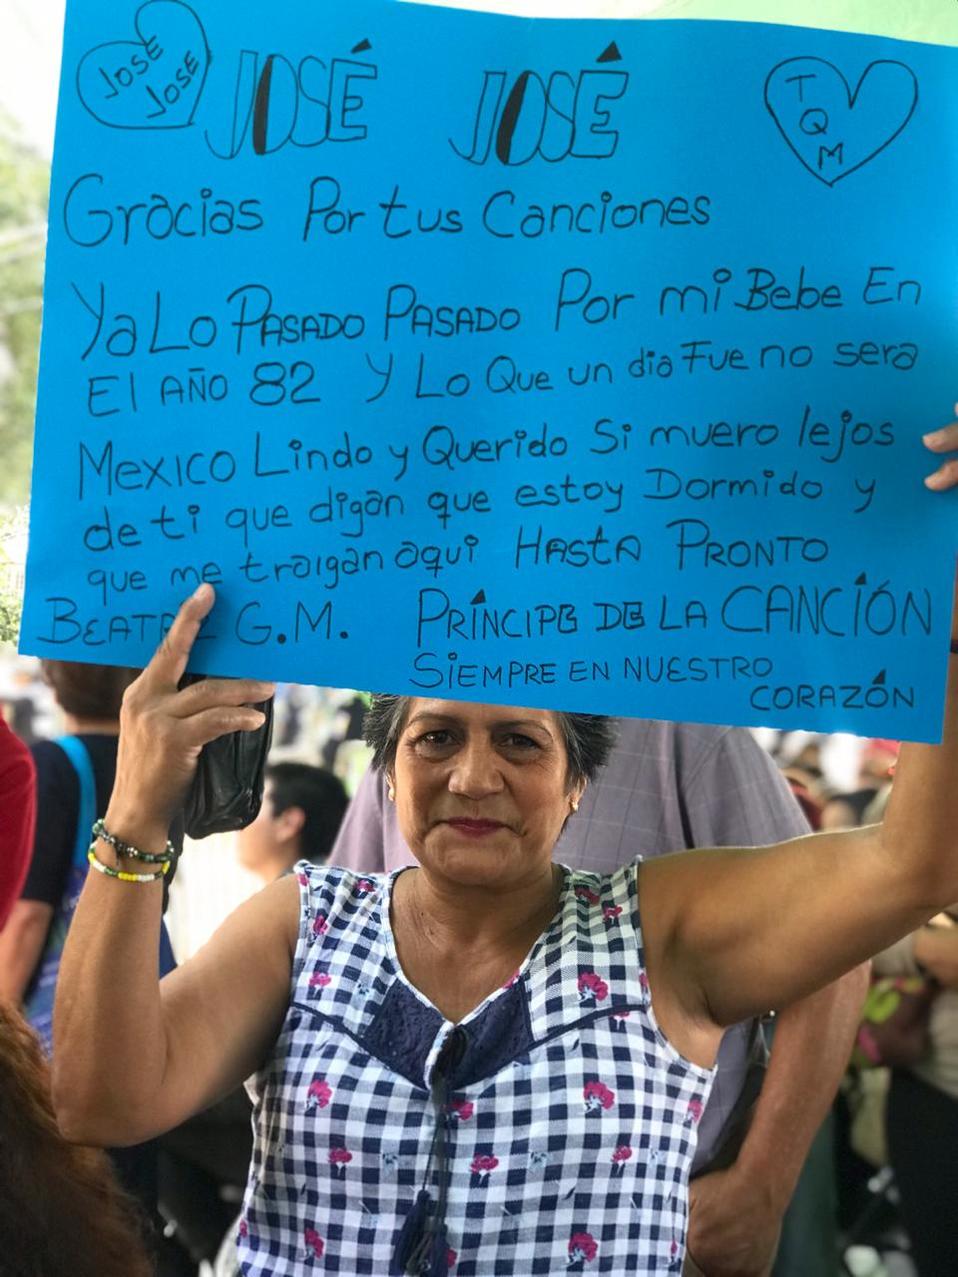 JOSE JOSE
JOSÉ JOSÉ
T Q M
Gracias Por tus Canciones
Ya Lo PASADO PASADO Por mi Bebe En
El AÑO 82 Y Lo Que un dia Fue no sera
MEXICO Lindo y Querido Si muero lejos
de ti que digan que estoy Dormido y
que me traigan aqui HASTA PRONTO
BEATRIZ G.M. PRÍNCIPE DE LA CANCIÓN
SIEMPRE EN NUESTRO
CORAZÓN